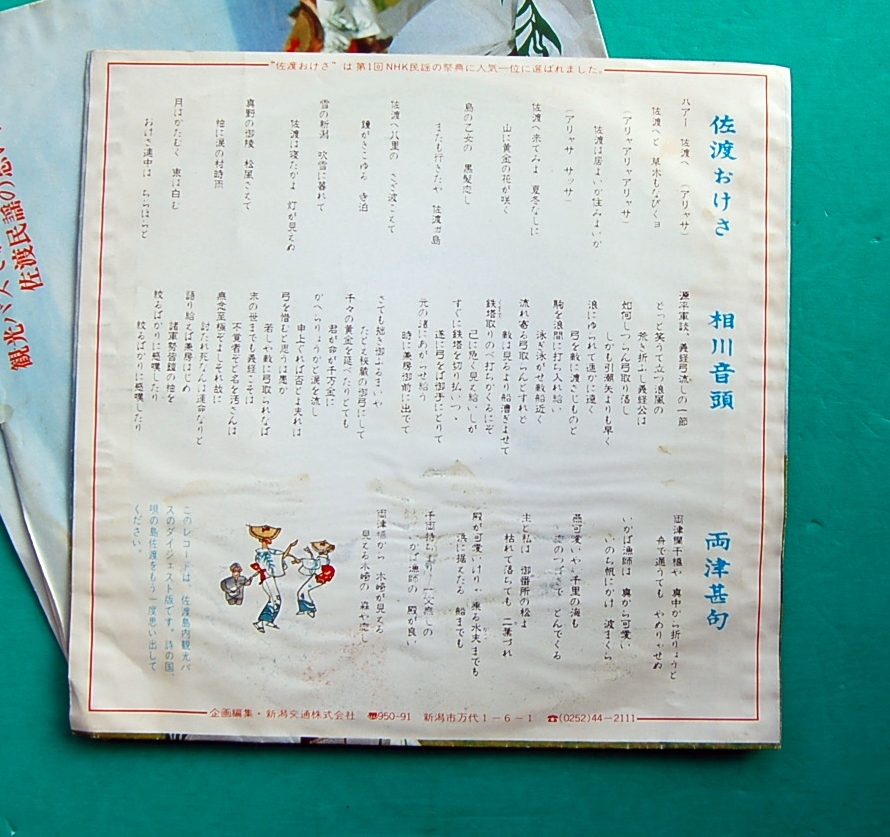 "佐渡おけさ"は第1回NHK民謡の祭典に人気一位に選ばれました。
佐渡おけさ
ハアー 佐渡へ (アリャサ)
佐渡へと 草木もなびくヨ
(アリャアリャアリャサ)
佐渡は居よいか住みよいか
(アリャサ サッサ)
佐渡へ来てみよ 夏冬なしに
山に黄金の花が咲く
島の乙女の 黒髪恋し
またも行きたや 佐渡ガ島
佐渡へ八里の さざ波こえて
鐘がきこゆる 寺泊
雪の新潟 吹雪に暮れて
佐渡は寝たかよ 灯が見えぬ
真野の御陵 松風さえて
袖に涙の村時雨
月はかたむく 東は白む
おけさ連中は ちらほらと
相川音頭
源平軍談、義経弓流しの一節
どっと笑うて立つ浪風の
荒き折ふし義経公は
如何しつらん弓取り落し
しかも引潮矢よりも早く
浪にゆられて遙かに遠く
弓を敵に渡さじものと
駒を浪間に打ち入れ給い
泳ぎ泳がせ敵船近く
流れ寄る弓取らんとすれど
敵は見るより船漕ぎよせて
鉄塔取りのべ打ちかくるにぞ
己に危く見え給いしが
すぐに鉄塔を切り払いつゝ
遂に弓をば御手にとりて
元の渚にあがらせ給う
時に兼房御前に出でて
さても拙き御ふるまいや
たとえ秘蔵の御弓にして
千々の黄金を延べたりとても
君が命が千万金に
かへらりょうかと涙を流し
申上ぐれば否とよ夫れは
弓を惜むと思うは愚か
若しや敵に弓取られなば
末の世までも義経こそは
不覚者ぞと名を汚さんは
無念至極ぞよしそれ故に
討たれ死なんは運命なりと
語り給えば兼房はじめ
諸軍勢皆鎧の袖を
絞るばかりに感嘆したり
絞るばかりに感嘆したり
両津甚句
両津欄干橋や 真中から折りょうと
舟で通うても やめりゃせぬ
いかば漁師は 真から可愛い
いのち帆にかけ 波まくら
燕可愛いや 千里の海も
とんでくる
主と私は 御番所の松よ
枯れて落ちても 二葉づれ
殿が可愛いけりゃ 乗る水夫までも
浜に据えたる 船までも
いかば漁師の 殿が良い
両津橋から 水崎が見える
見える水崎の 森や恋し
このレコードは、佐渡島内観光バ
スのダイジェスト版です。詩の国、
唄の島佐渡をもう一度思い出して
ください。
企画編集・新潟交通株式会社 〠950-91 新潟市万代1-6-1 ☎(0252)44-2111
観光バスで
佐渡民謡の思い